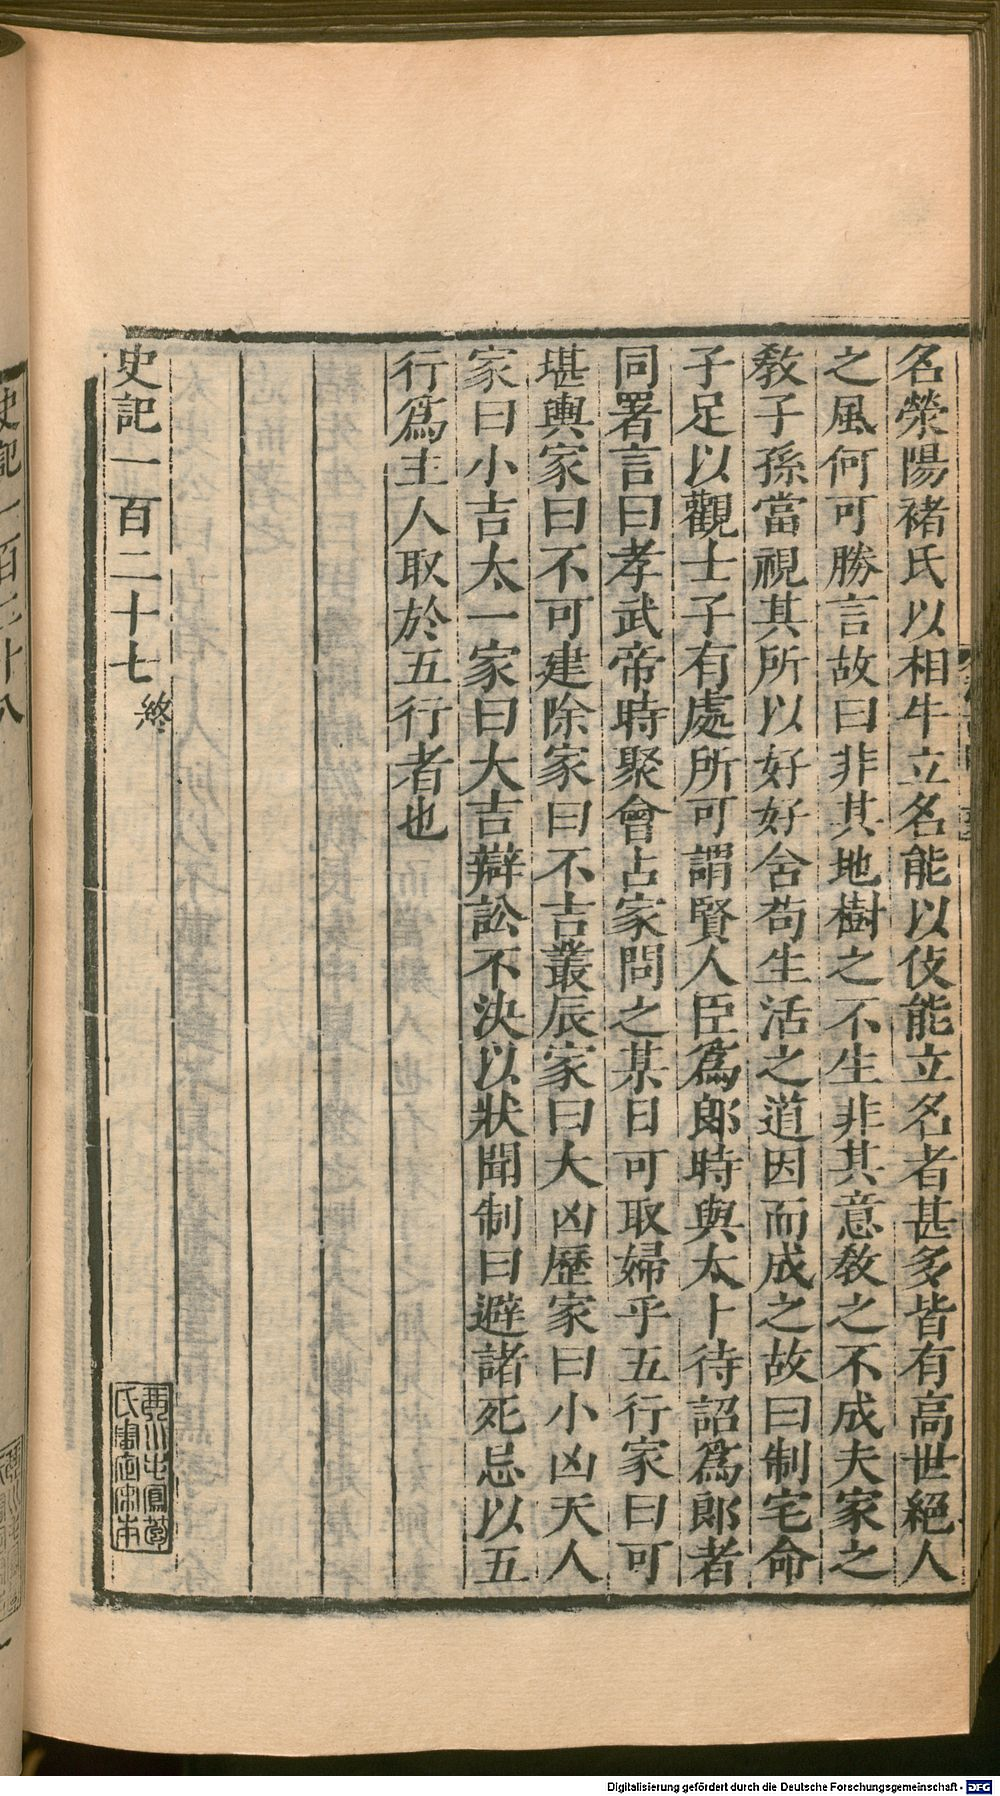 名滎陽褚氏以相牛立名能以伎能立名者甚多皆有高世絕人
之風何可勝言故曰非其地樹之不生非其意敎之不成夫家之
敎子孫當視其所以好好含苟生活之道因而成之故曰制宅命
子足以觀士子有處所可謂賢人臣爲郞時與太卜待詔爲郞者
同署言曰孝武帝時聚會占家問之某日可取婦乎五行家曰可
堪輿家曰不可建除家曰不吉叢辰家曰大凶歷家曰小凶天人
家曰小吉太一家曰大吉辯訟不決以狀聞制曰避諸死忌以五
行爲主人取於五行者也
史記一百二十七 終
史記一百二十八
Digitalisierung gefördert durch die Deutsche Forschungsgemeinschaft - DFG